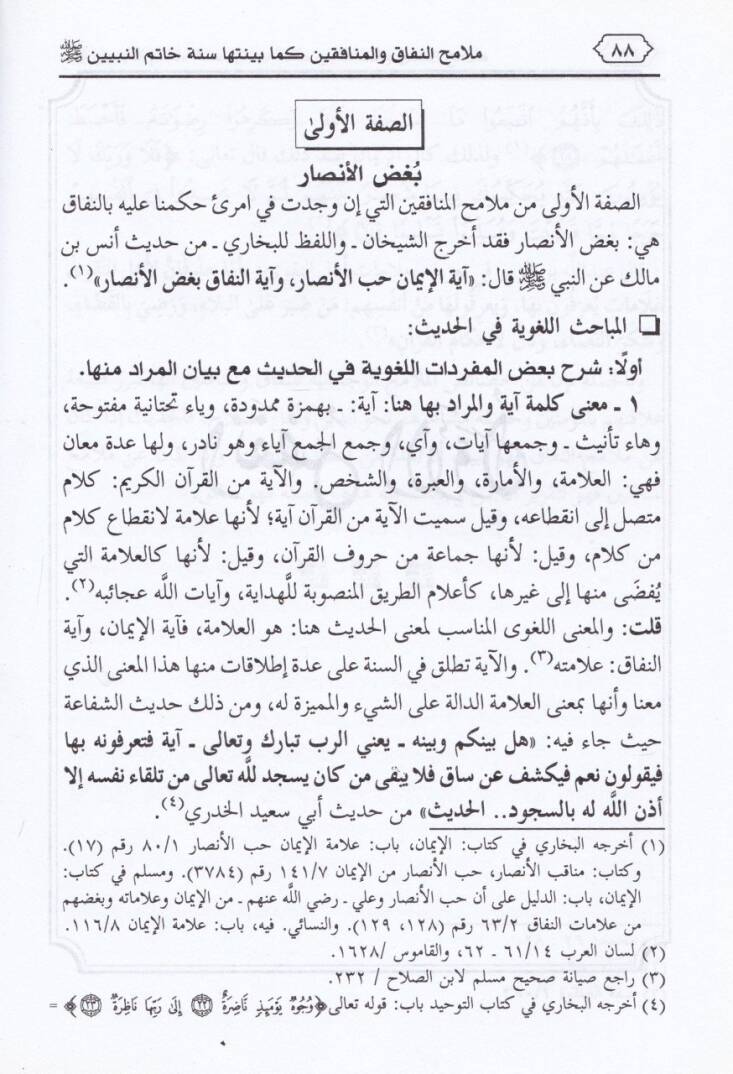 ٨٨
ملامح النفاق والمنافقين كما بينتها سنة خاتم النبيين ﷺ
الصفة الأولى
بُغض الأنصار
الصفة الأولى من ملامح المنافقين التي إن وجدت في امرئ حكمنا عليه بالنفاق
هي: بغض الأنصار فقد أخرج الشيخان ـ واللفظ للبخاري ـ من حديث أنس بن
مالك عن النبي ﷺ قال: «آية الإيمان حب الأنصار، وآية النفاق بغض الأنصار»(١).
❑ المباحث اللغوية في الحديث:
أولًا: شرح بعض المفردات اللغوية في الحديث مع بيان المراد منها.
١ ـ معنى كلمة آية والمراد بها هنا: آية: ـ بهمزة ممدودة، وياء تحتانية مفتوحة،
وهاء تأنيث ـ وجمعها آيات، وآي، وجمع الجمع آياء وهو نادر، ولها عدة معان
فهي: العلامة، والأمارة، والعبرة، والشخص. والآية من القرآن الكريم: كلام
متصل إلى انقطاعه، وقيل سميت الآية من القرآن آية؛ لأنها علامة لانقطاع كلام
من كلام، وقيل: لأنها جماعة من حروف القرآن، وقيل: لأنها كالعلامة التي
يُفضَى منها إلى غيرها، كأعلام الطريق المنصوبة للَّهداية، وآيات اللَّه عجائبه(٢).
قلت: والمعنى اللغوى المناسب لمعنى الحديث هنا: هو العلامة، فآية الإيمان، وآية
النفاق: علامته(٣). والآية تطلق في السنة على عدة إطلاقات منها هذا المعنى الذي
معنا وأنها بمعنى العلامة الدالة على الشيء والمميزة له، ومن ذلك حديث الشفاعة
حيث جاء فيه: «هل بينكم وبينه ـ يعني الرب تبارك وتعالى ـ آية فتعرفونه بها
فيقولون نعم فيكشف عن ساق فلا يبقى من كان يسجد للَّه تعالى من تلقاء نفسه إلا
أذن اللَّه له بالسجود.. الحديث» من حديث أبي سعيد الخدري(٤).
(١) أخرجه البخاري في كتاب: الإيمان، باب: علامة الإيمان حب الأنصار ٨٠/١ رقم (١٧).
وكتاب: مناقب الأنصار، حب الأنصار من الإيمان ١٤١/٧ رقم (٣٧٨٤). ومسلم في كتاب:
الإيمان، باب: الدليل على أن حب الأنصار وعلي ـ رضي اللَّه عنهم ـ من الإيمان وعلاماته وبغضهم
من علامات النفاق ٦٣/٢ رقم (١٢٨، ١٢٩). والنسائي. فيه، باب: علامة الإيمان ١١٦/٨.
(٢) لسان العرب ٦١/١٤ ـ ٦٢، والقاموس /١٦٢٨.
(٣) راجع صيانة صحيح مسلم لابن الصلاح / ٢٣٢.
(٤) أخرجه البخاري في كتاب التوحيد باب: قوله تعالى ﴿وُجُوهٌ يَوْمَئِذٍ نَّاضِرَةٌ ۝٢٢ إِلَىٰ رَبِّهَا نَاظِرَةٌ ۝٢٣﴾ =